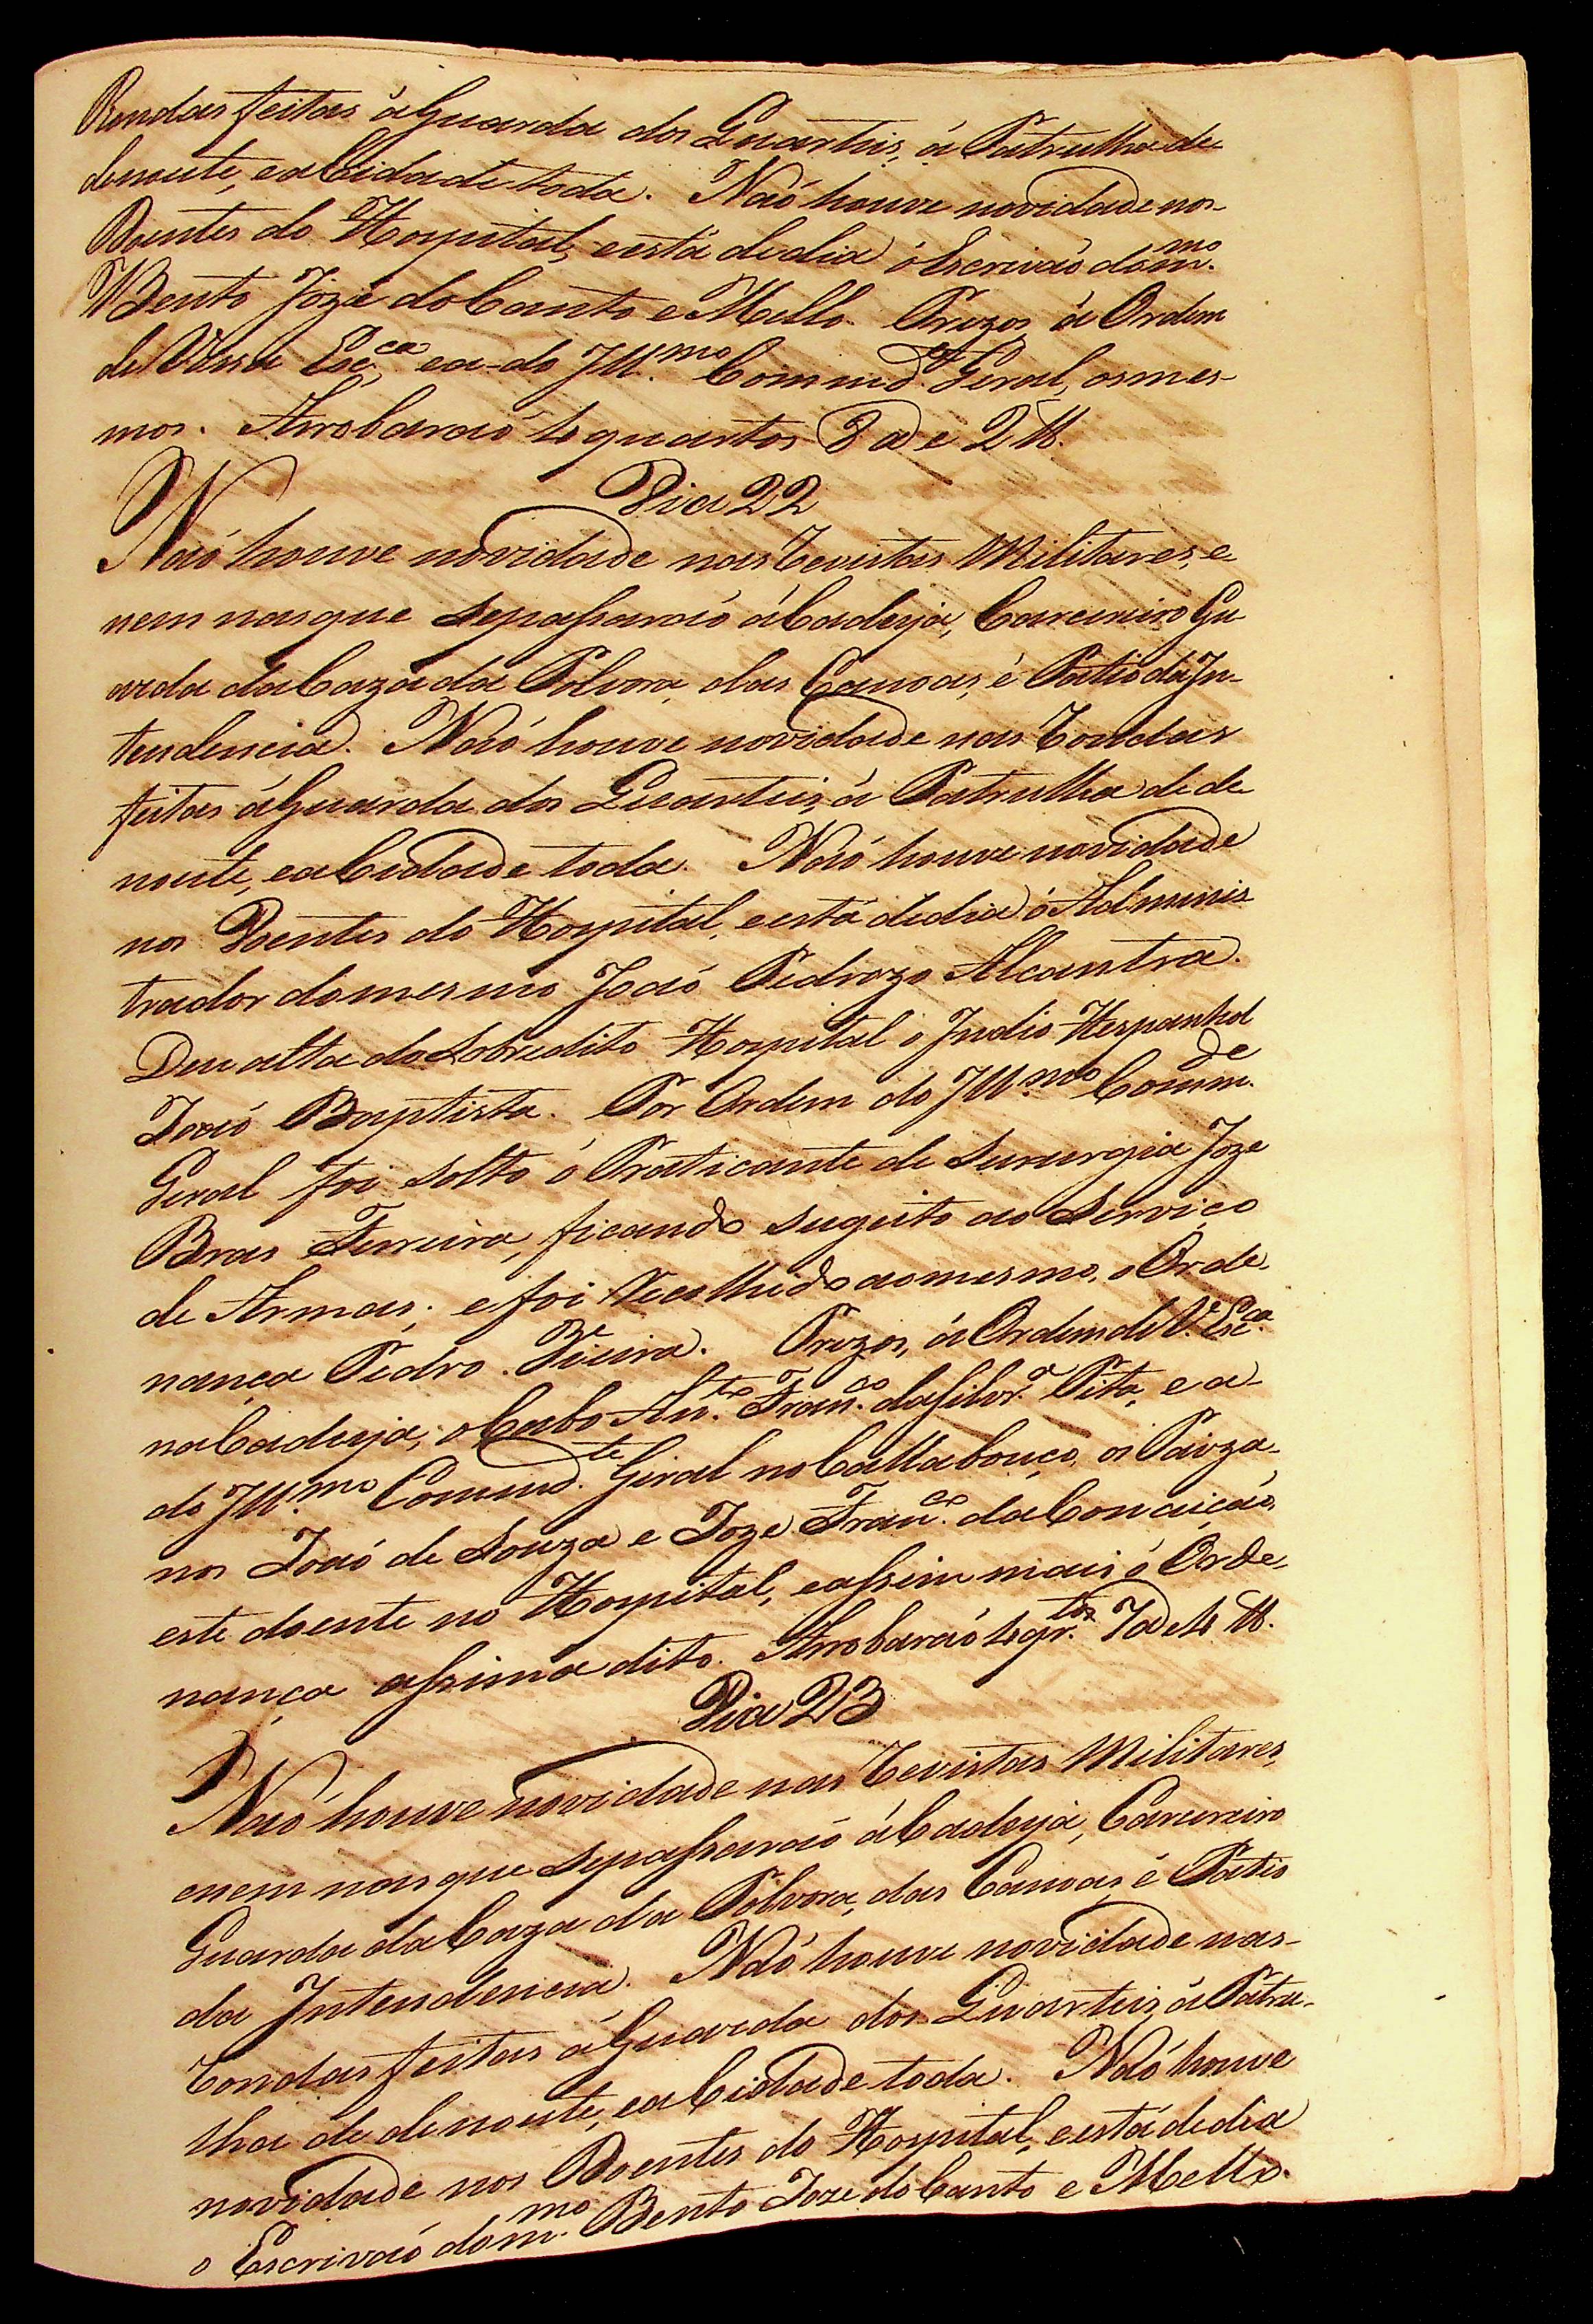 Rondas feitas á Guarda dos Quarteis, á Patrulha de
denoute, ea Cidade toda. Naõ houve novidade nos
Doentes do Hospital, eestá dedia ó Escrivaõ dom.mo
Bento Jozé do Canto e Mello. Prezos á Ordem
de Vossa Exc.ca ea do Ill.mo Commd.te Geral, osmes-
mos. Arrobaraõ 4 quartos 8 @ e 2 ℔.
Dia 22
Naõ houve novidade nas Revistas Militares, e
nem nasque sepassaraõ áCadeya, Carcereiro Gu-
arda daCaza da Polvora, das Canoas, é Patio da In-
tendencia. Naõ houve novidade nas Rondas
feitas áGuarda dos Quarteis, á Patrulha dede
noute, eaCidade toda. Naõ houve novidade
nos Doentes do Hospital, eestá dedia ó Adminis
trador domesmo Joaõ Pedrozo Alcantra.
Deu alta do Sobredito Hospital o Indio Hespanhol
Joaõ Baptista. Por Ordem do Ill.mo Comm.de
Geral foi solto ó Praticante de Sururgia Joze
Bras Ferreira, ficando sugeito ao Serviço
de Armas; e foi Recolhido aomesmo, o Orde-
nança Pedro Vieira. Prezos, á Ordem de V.ª Exc.ca
naCadeya, oCabo An.to Fran.co daSilv.ª Pita, e a-
do Ill.mo Commd.te Geral noCallabouço, os Paiza-
nos Joaõ de Souza e Joze Fran.co daConceiçaõ,
este doente no Hospital, eassim mais ó Orde-
nança assima dito. Arrobaraõ 4 qr.tos 7 @ e 4 ℔.
Dia 23
Naõ houve novidade nas Revistas Militares,
enem nasque sepassaraõ áCadeya, Carcereiro
Guarda daCaza da Polvora, das Canoas, é Patio
da Intendencia. Naõ houve novidade nas
Rondas feitas áGuarda dos Quarteis, á Patru-
lha de denoute, eaCidade toda. Naõ houve
novidade nos Doentes do Hospital, eestá dedia
o Escrivaõ dom.mo Bento Joze do Canto e Mello.